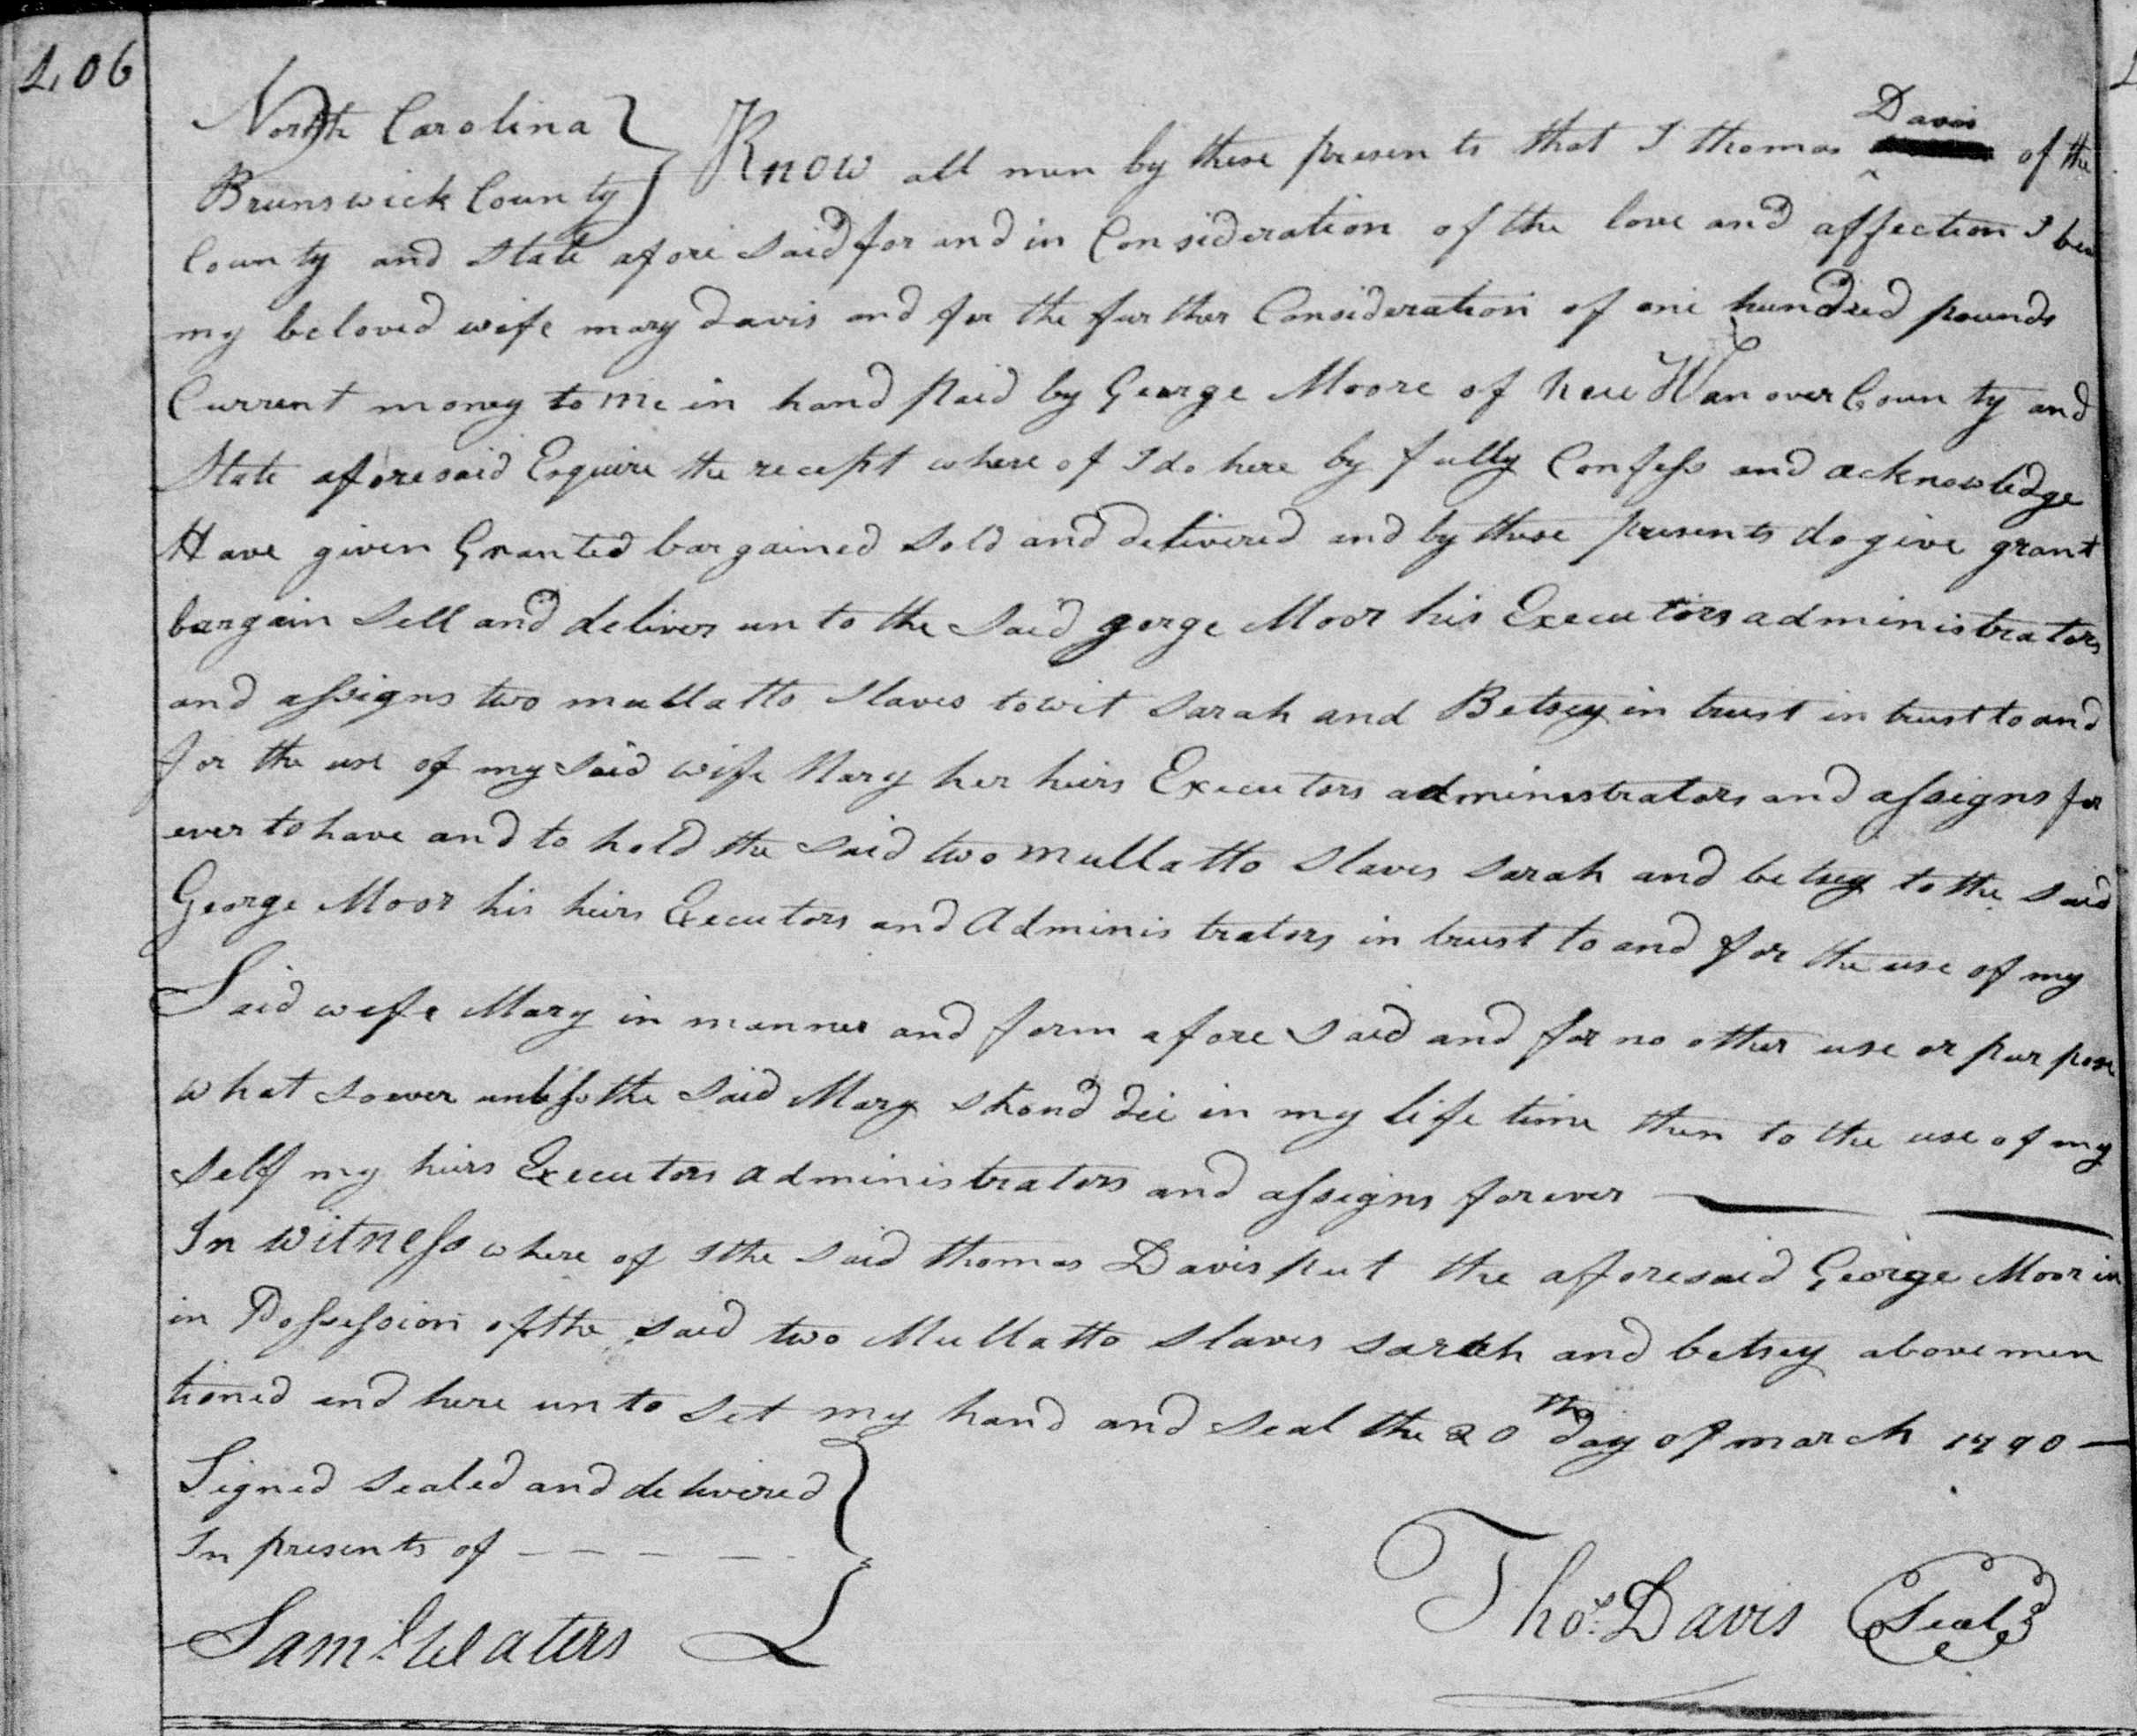 206
North Carolina
Brunswick County
Know all men by these presents that I thomas Davis of the
County and State afore said for and in Consideration of the love and affection I bear
my beloved wife mary Davis and for the further Consideration of one hundred pounds
Current money to me in hand paid by George Moore of new Hanover County and
State aforesaid Esquire the recept where of I do here by fully Confess and acknowledge
Have given Granted bargained Sold and delivered and by these presents do give grant
bargain Sell and deliver un to the Said gorge Moor his Executors administrators
and assigns two mullatto slaves towit Sarah and Betsey in trust in trust to and
for the use of my Said wife Mary her heirs Executors administrators and assigns for
ever to have and to hold the Said two mullatto slaves Sarah and betsey to the said
George Moor his heirs Executors and Adminis trators in trust to and for the use of my
Said wife Mary in manner and form afore Said and for no other use or pur pose
what soever unless the Said Mary shoud die in my life time then to the use of my
Self my heirs Executors administrators and assigns forever
In witness where of I the Said thomas Davis put the aforesaid George Moor in
in Possession of the said two Mullatto slaves sarah and betsey above men
tioned and here un to Set my hand and seal the 20th day of march 1790
Signed Sealed and delivered
In presents of
Saml. Waters
Thos. Davis Seal